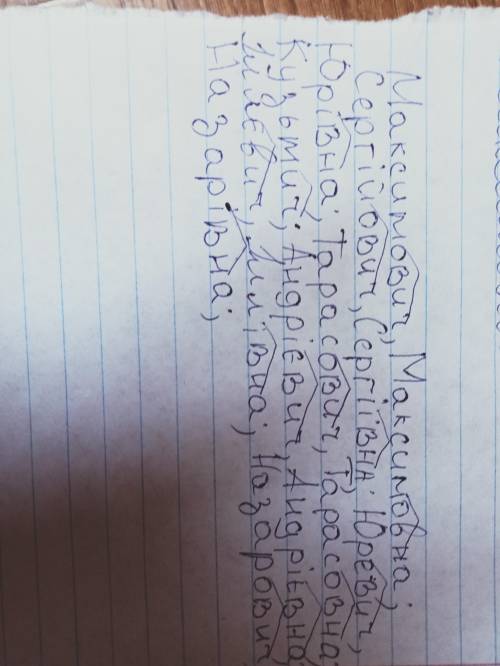 Максимович, Максимовна;
Сергійович, Сергіївна; Юревич,
Юрівна; Тарасович, Тарасовна;
Кузьмич; Андрієвич, Андрієвна;
Іллєвич, Іллівна; Назарович,
Назарівна;